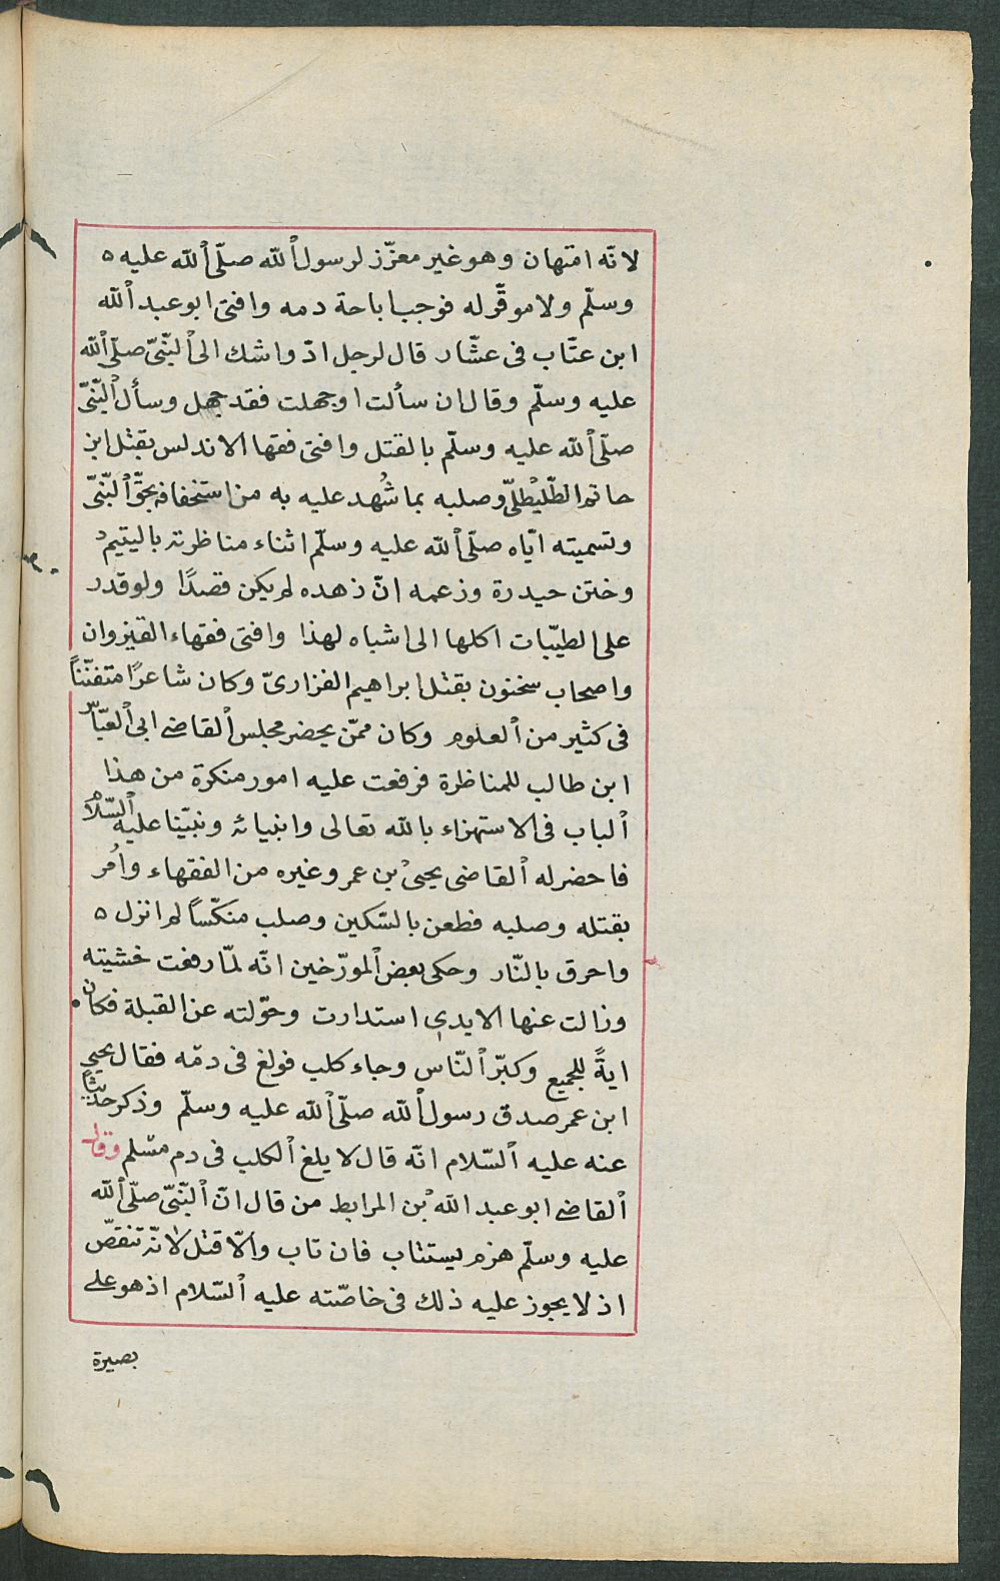 لانّه امتهان وهو غير معزّز لرسول الله صلّى الله عليه ه
وسلّم ولا موقّر له فوجب اباحة دمه وافتى ابو عبد الله
ابن عتّاب فى عشّار قال لرجل ادّ واشك الى النّبىّ صلّى الله
عليه وسلّم وقال ان سألت او جهلت فقد جهل وسأل النّبىّ
صلّى الله عليه وسلّم بالقتل وافتى فقها الاندلس بقتل ابن
حاتم الطّليْطلىّ وصلبه بما شُهد عليه به من استخفافه بحقّ النّبىّ
وتسميته ايّاه صلّى الله عليه وسلّم اثناء مناظرته باليتيم
وختن حيدرة وزعمه انّ زهده لم يكن قصدًا ولو قدر
على الطيّبات اكلها الى اشباه لهذا وافتى فقهاء القيروان
واصحاب سحنون بقتل ابراهيم الفزارىّ وكان شاعرًا متفنّناً
فى كثير من العلوم وكان ممّن يحضر مجلس القاضى ابى العبّاس
ابن طالب للمناظرة فرفعت عليه امور منكرة من هذا
الباب فى الاستهزاء بالله تعالى وانبيائه ونبيّنا عليه السّلام
فاحضر له القاضى يحيى بن عمر وغيره من الفقهاء واُمر
بقتله وصلبه فطعن بالسّكين وصلب منكّساً ثم انزل ه
واحرق بالنّار وحكى بعض المورّخين انّه لمّا رفعت خشيته
وزالت عنها الايدى استدارت وحوّلته عن القبلة فكان
ايةً للجميع وكبّر النّاس وجاء كلب فولغ فى دمّه فقال يحيى
ابن عمر صدق رسول الله صلّى الله عليه وسلّم وذكر حديثاً
عنه عليه السّلام انّه قال لا يلغ الكلب فى دم مسْلم وقال
القاضى ابو عبد الله بْن المرابط من قال انّ النّبىّ صلّى الله
عليه وسلّم هزم يستتاب فان تاب والّا قتل لانّه تنقصّ
اذ لا يجوز عليه ذلك فى خاصّته عليه السّلام اذ هو على
بصيرة